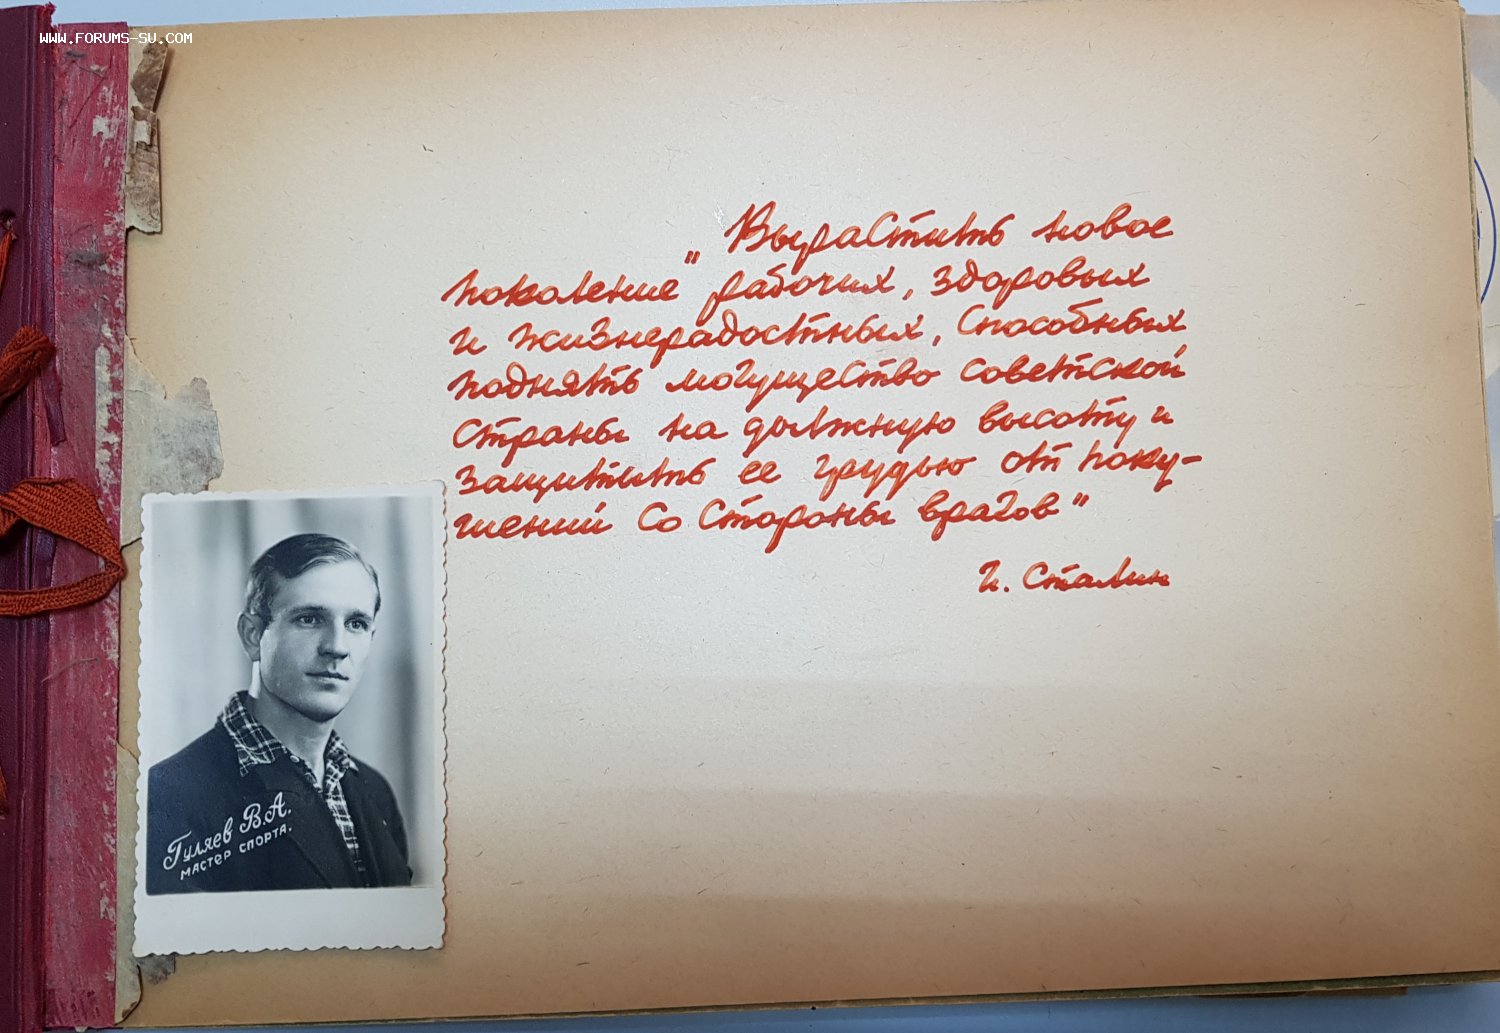 WWW.FORUMS-SU.COM
„Вырастить новое
поколение рабочих, здоровых
и жизнерадостных, способных
поднять могущество советской
страны на должную высоту и
защитить ее грудью от поку-
шений со стороны врагов"
И. Сталин
Гуляев В.А.
МАСТЕР СПОРТА.